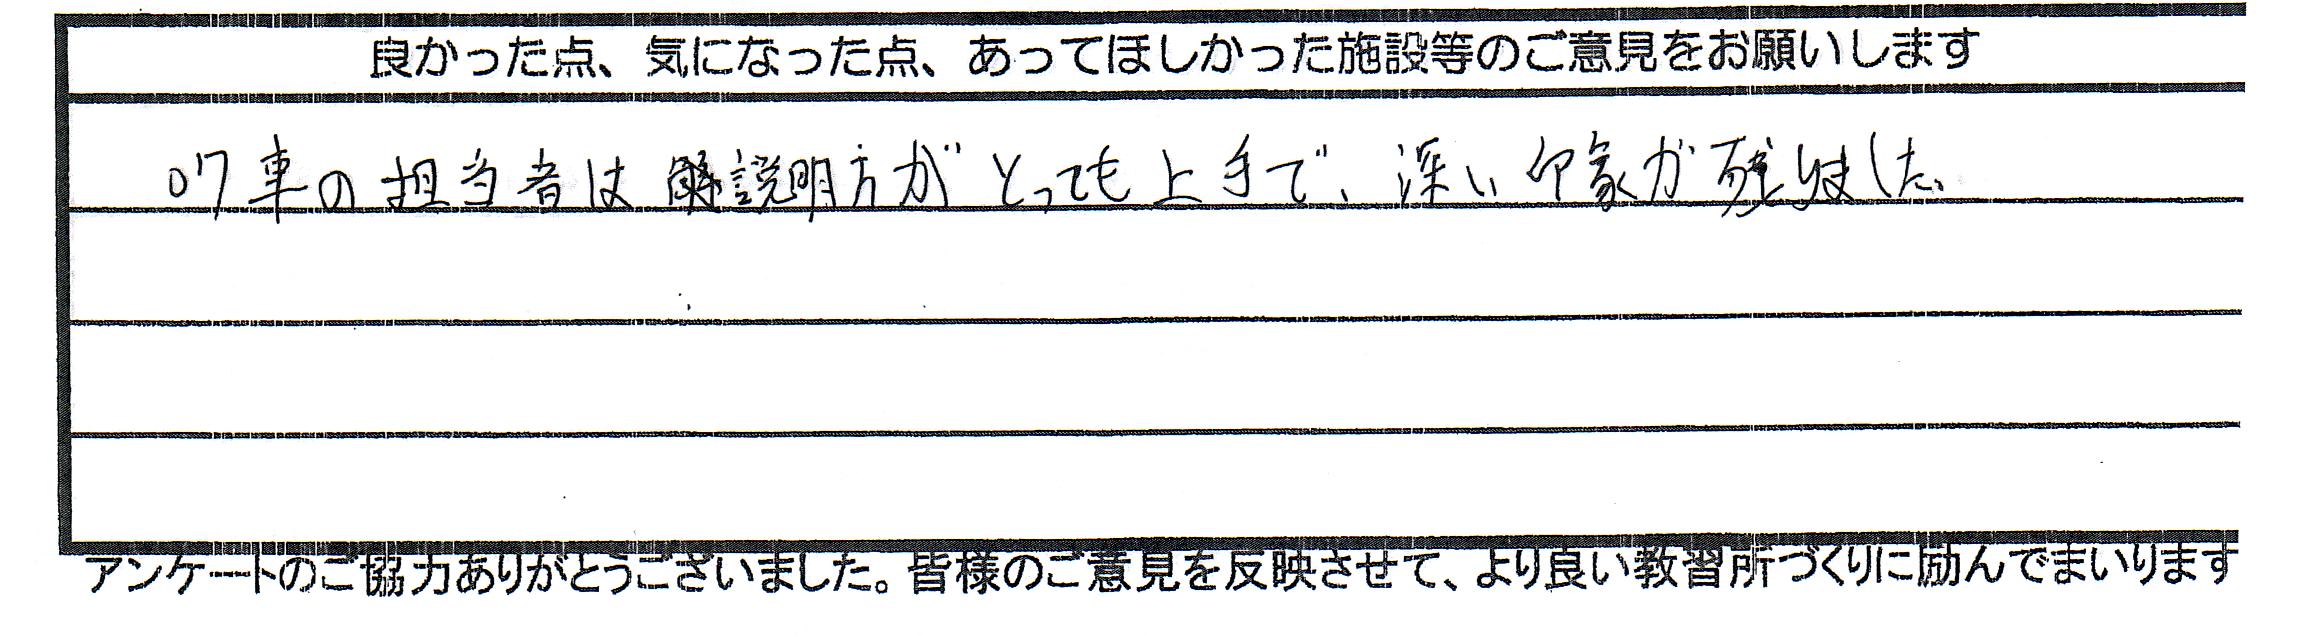 良かった点、気になった点、あってほしかった施設等のご意見をお願いします
07車の担当者は解説明方がとっても上手で、深い印象が残りました。
アンケートのご協力ありがとうございました。皆様のご意見を反映させて、より良い教習所づくりに励んでまいります